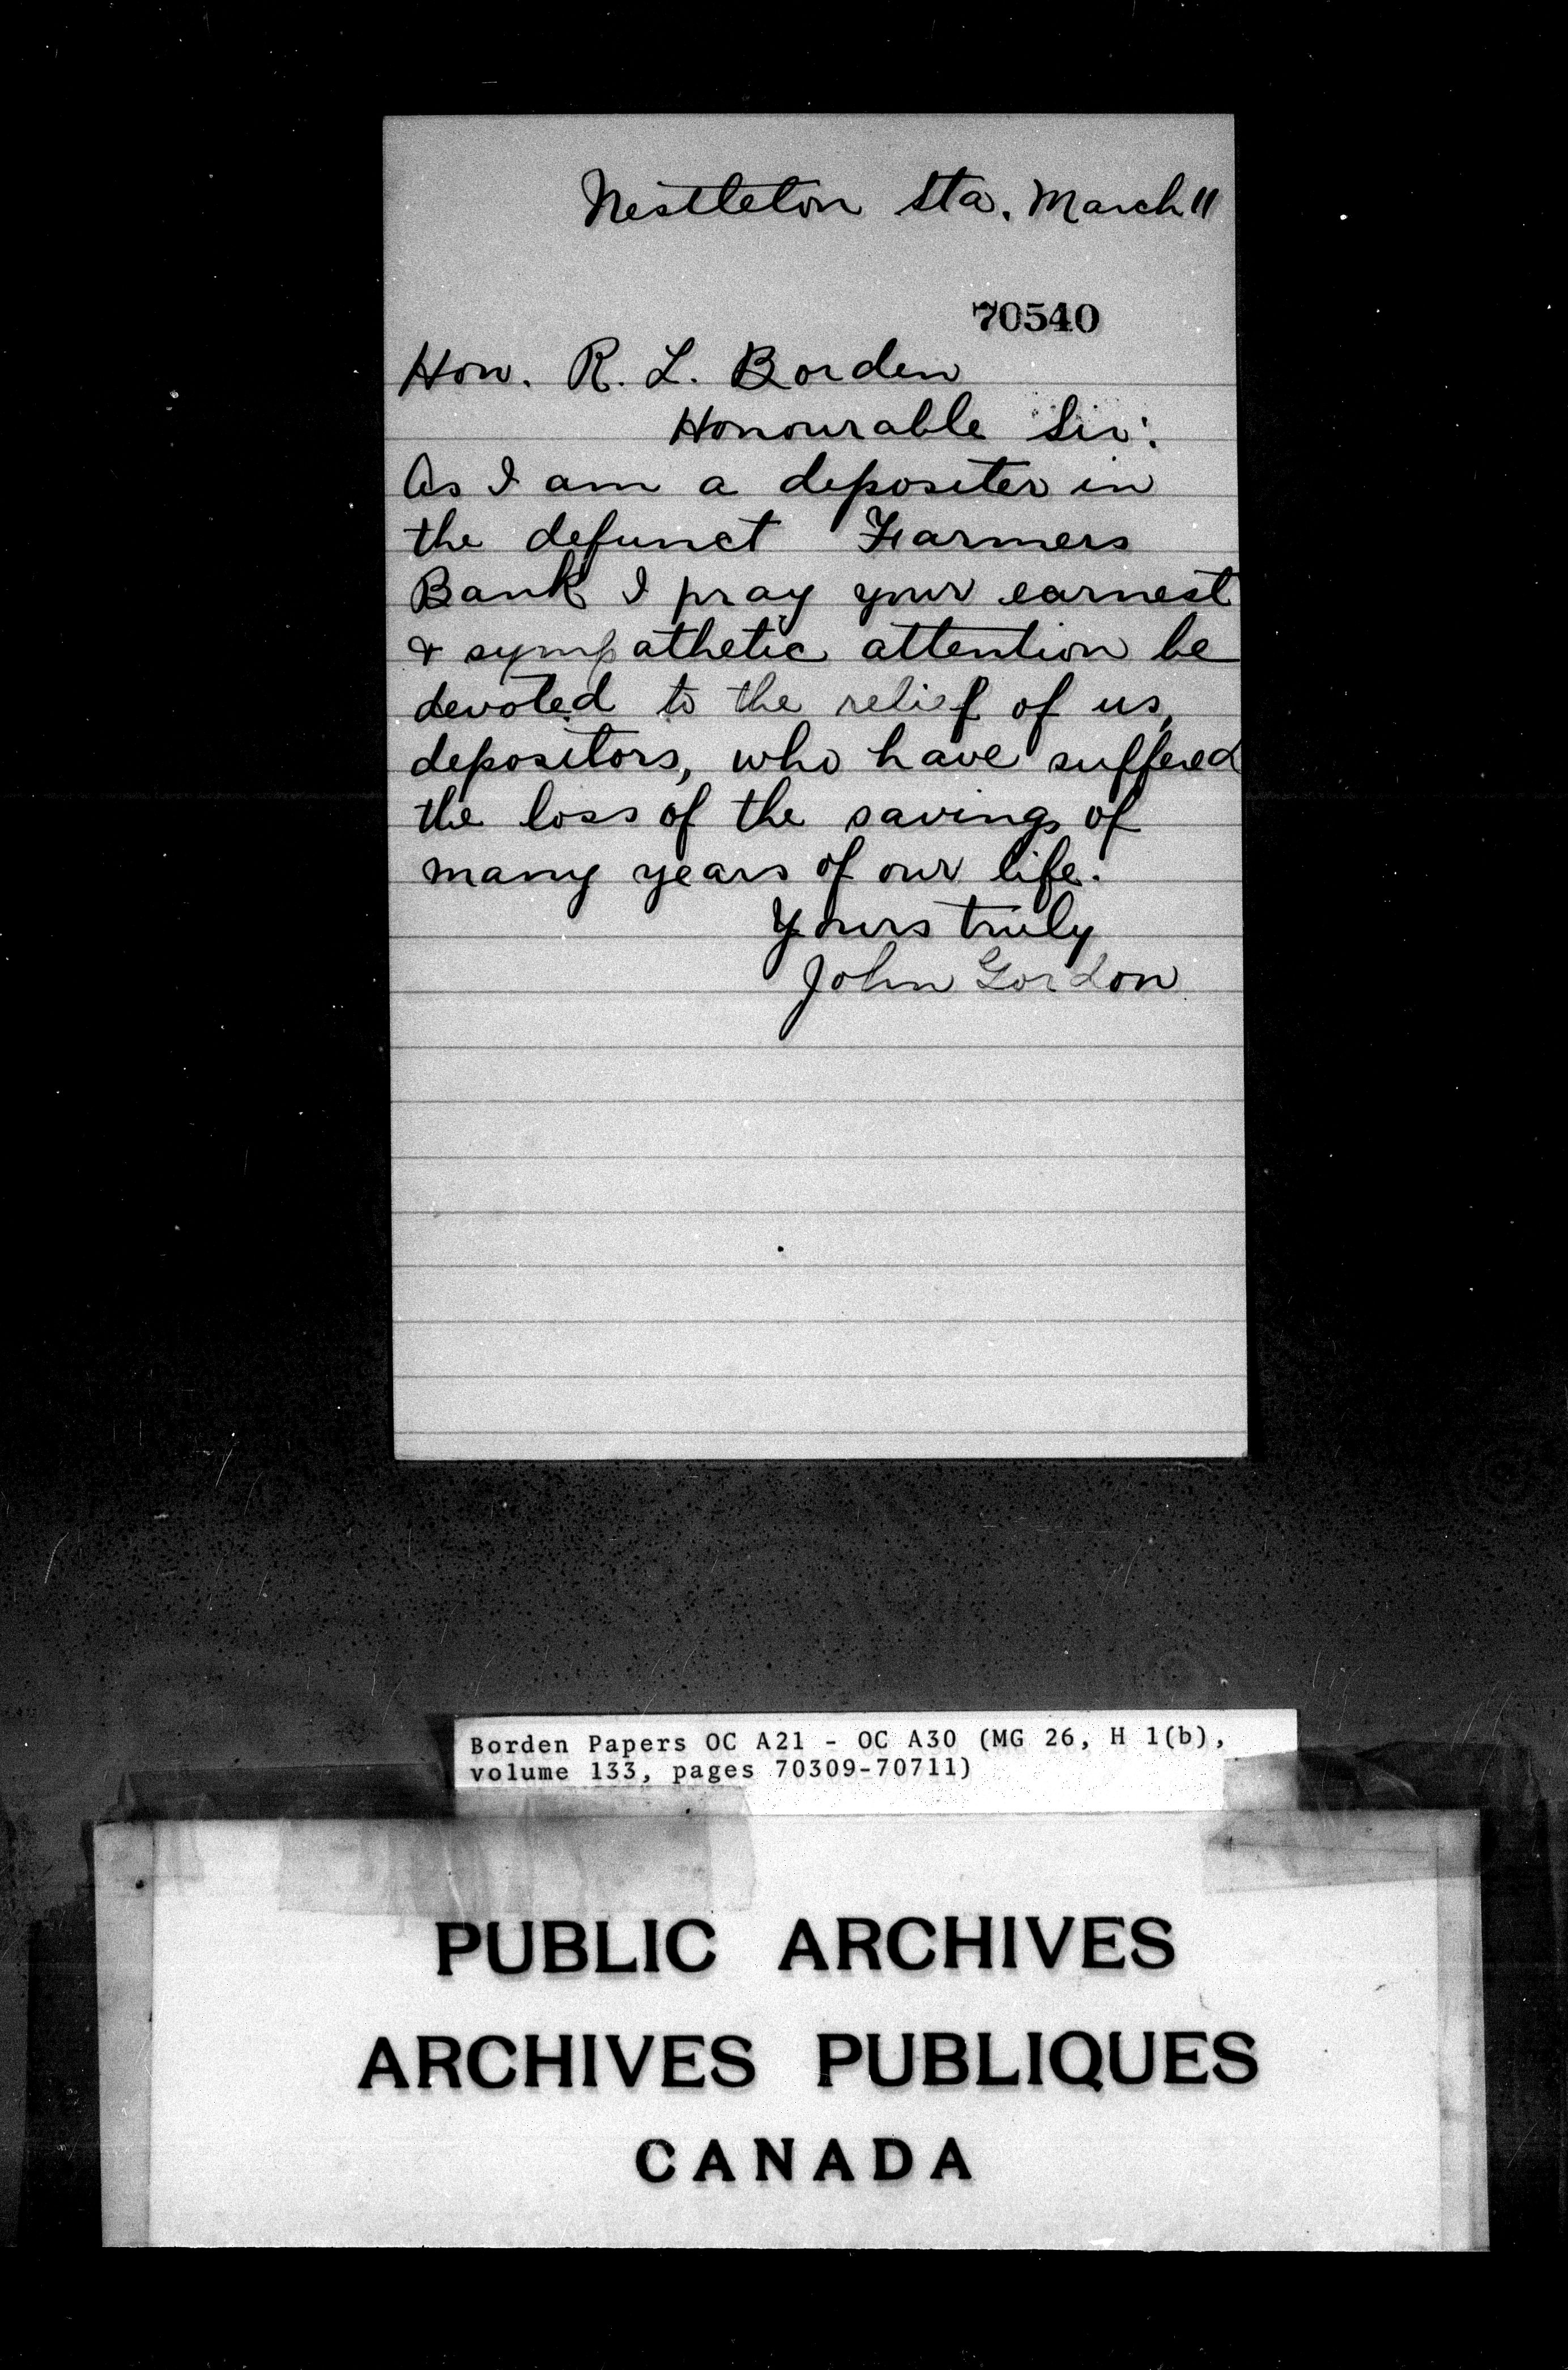 Nestleton Sta. March 11
70540
Hon. R. L. Borden
Honourable Sir:
As I am a depositer in
the defunct Farmers
Bank I pray your earnest
& sympathetic attention be
devoted to the relief of us,
depositors, who have suffered
the loss of the savings of
many years of our life.
Yours truly
John Gordon
Borden Papers OC A21 - OC A30 (MG 26, H 1(b),
volume 133, pages 70309-70711)
PUBLIC ARCHIVES
ARCHIVES PUBLIQUES
CANADA